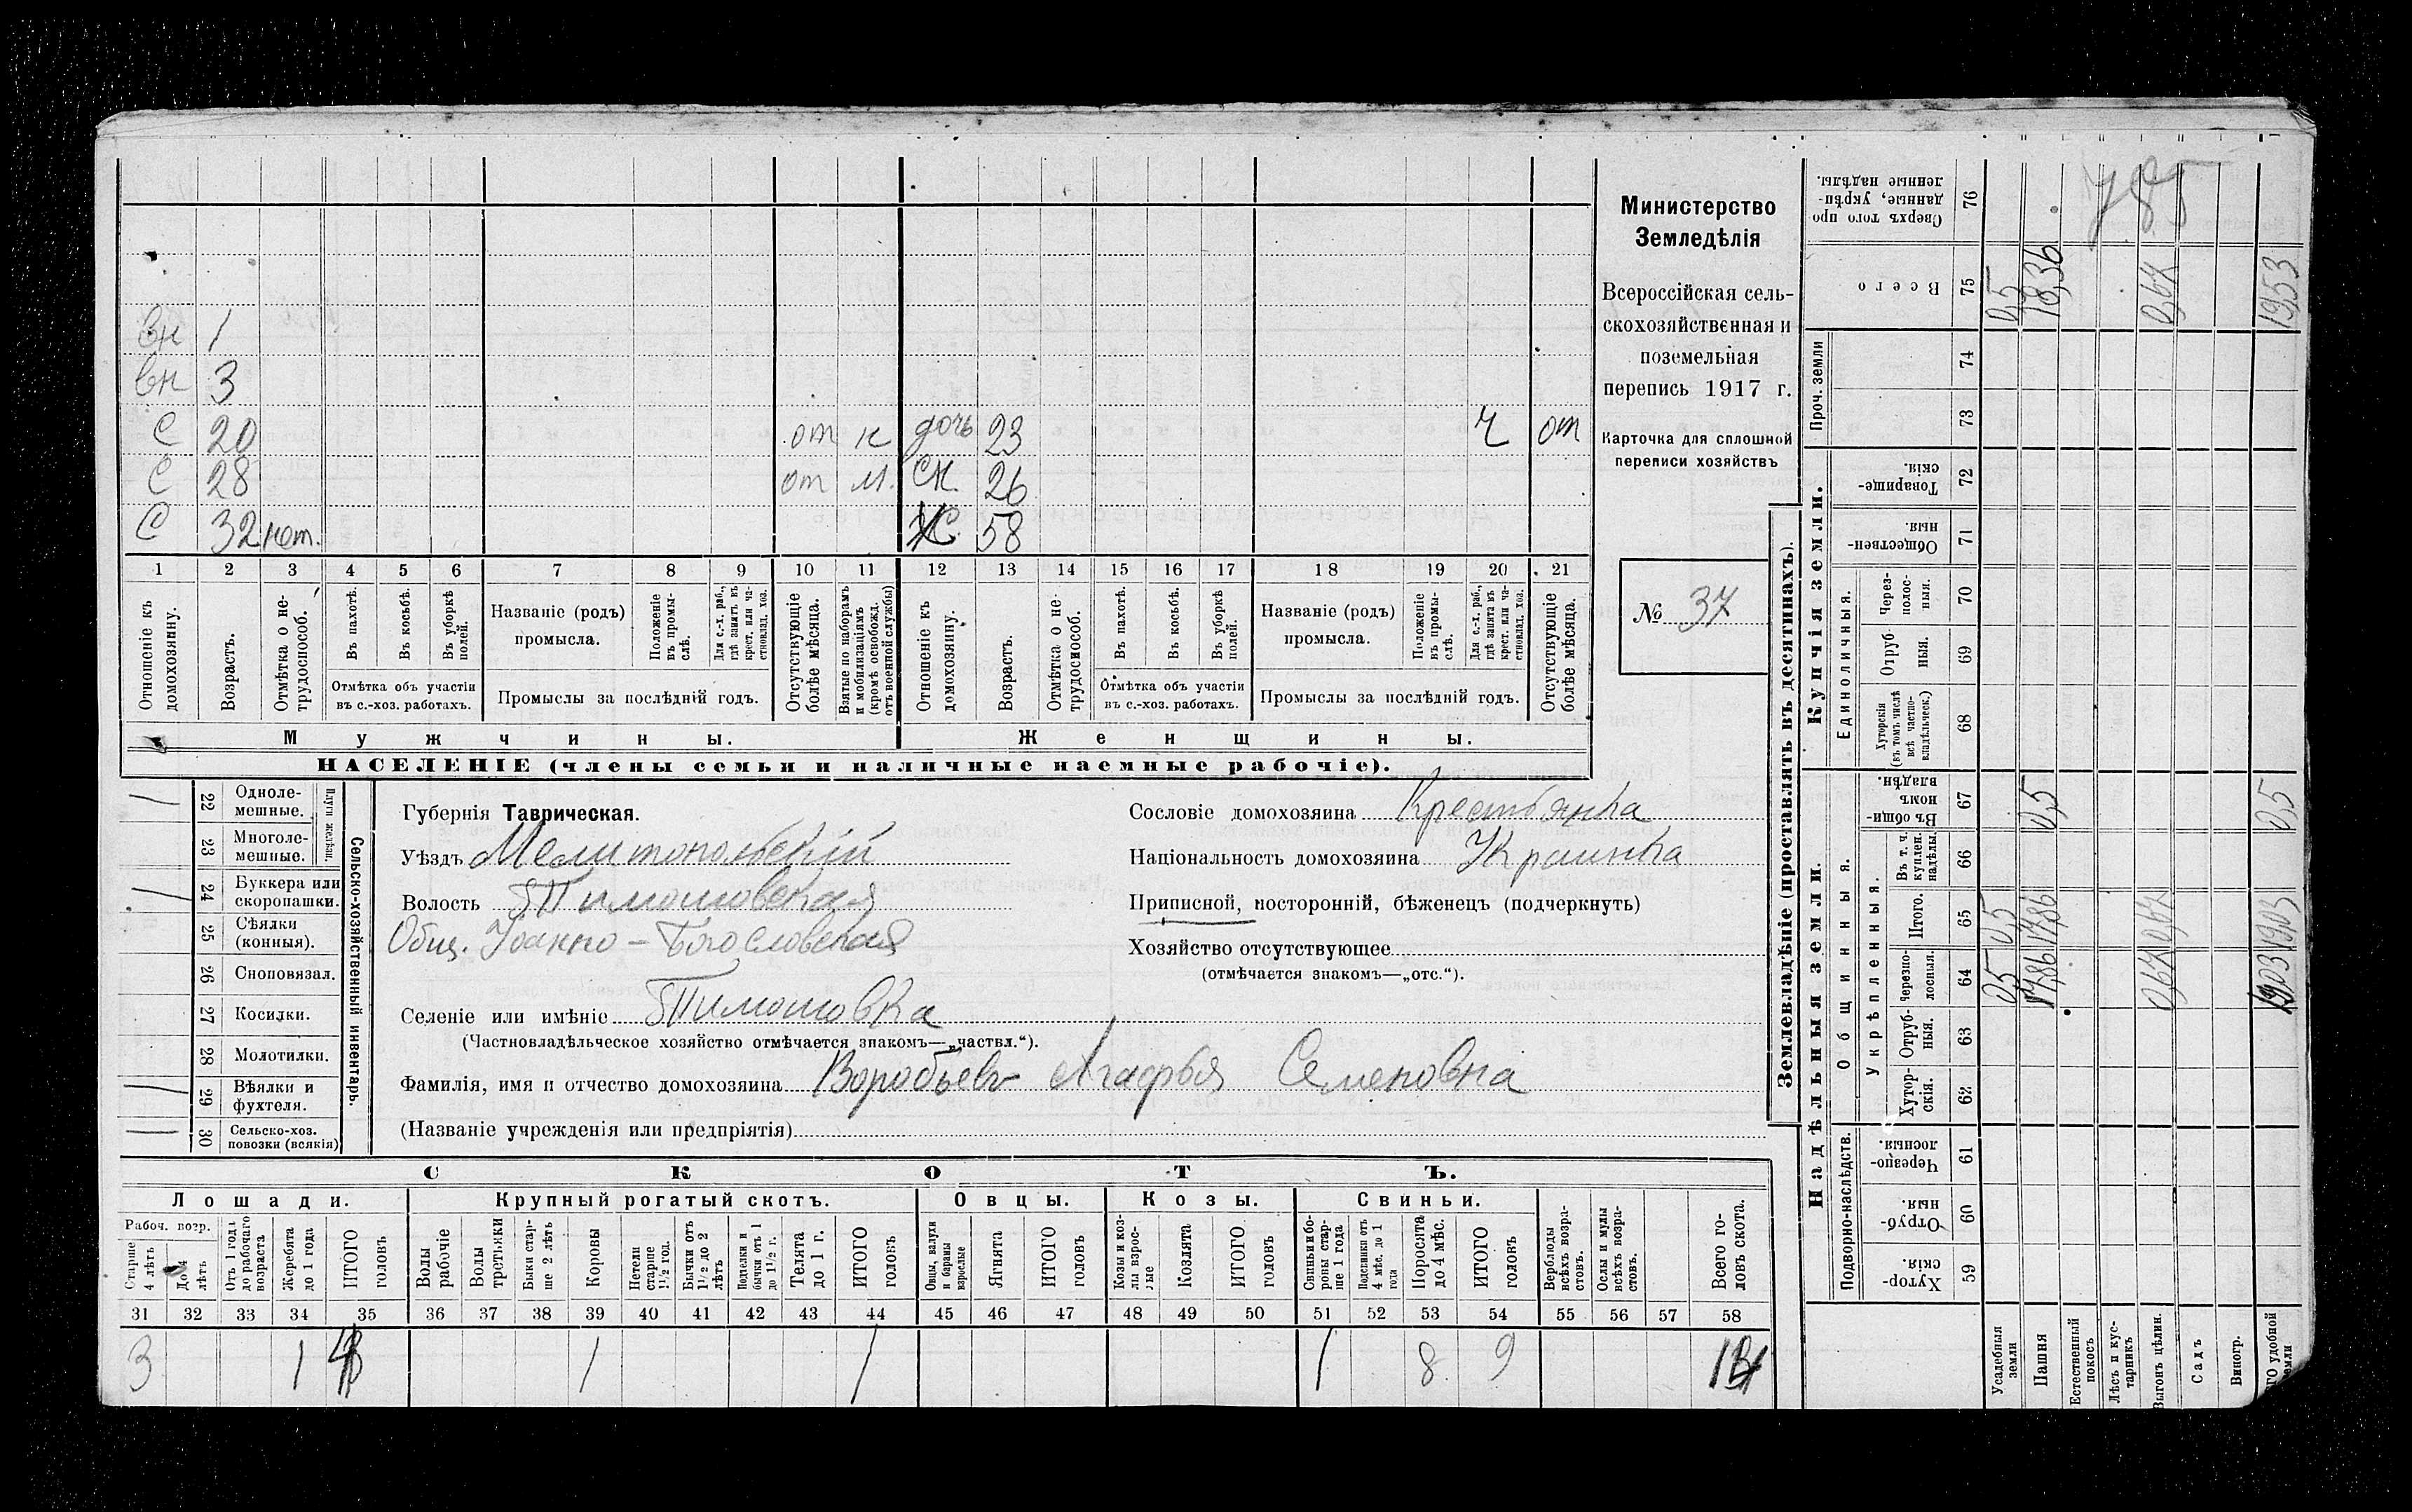 Министерство
Земледѣлія
Всероссійская сель-
скохозяйственная и
поземельная
перепись 1917 г.
Карточка для сплошной
переписи хозяйствъ
№ 37
вн 1
вн 3
С 20 от к дочь 23 ч от
С 28 от м. сн. 26
С 32 нет. Ж 58
1 2 3 4 5 6 7 8 9 10 11 12 13 14 15 16 17 18 19 20 21
Отношеніе къ домохозяину.
Возрастъ.
Отмѣтка о не-трудоспособ.
Въ пахотѣ.
Въ косьбѣ.
Въ уборкѣ полей.
Отмѣтка объ участіи
въ с.-хоз. работахъ.
Названіе (родъ)
промысла.
Положеніе въ промы-слѣ.
Для с.-х. раб., гдѣ занятъ въ крест. или ча-стновлад. хоз.
Промыслы за послѣдній годъ.
Отсутствующіе болѣе мѣсяца.
Взятые по наборамъ и мобилизаціямъ (кромѣ освобожд. отъ военной службы)
Отношеніе къ домохозяину.
Возрастъ.
Отмѣтка о не-трудоспособ.
Въ пахотѣ.
Въ косьбѣ.
Въ уборкѣ полей.
Отмѣтка объ участіи
въ с.-хоз. работахъ.
Названіе (родъ)
промысла.
Положеніе въ промы-слѣ.
Для с.-х. раб., гдѣ занята въ крест. или ча-стновлад. хоз.
Промыслы за послѣдній годъ.
Отсутствующіе болѣе мѣсяца.
Мужчины. Женщины.
НАСЕЛЕНІЕ (члены семьи и наличные наемные рабочіе).
Сельско-хозяйственный инвентарь.
Плуги желѣзн.
22 Одноле-мешные.
23 Многоле-мешные.
24 Буккера или скоропашки.
25 Сѣялки (конныя).
26 Сноповязал.
27 Косилки.
28 Молотилки.
29 Вѣялки и фухтеля.
30 Сельско-хоз. повозки (всякія)
Губернія Таврическая.
Уѣздъ Мелитопольскій
Волость Тимошовская
Общ. Іоанно-Богословская
Селеніе или имѣніе Тимошовка
(Частновладѣльческое хозяйство отмѣчается знакомъ—„частвл.“).
Фамилія, имя и отчество домохозяина Воробьевъ Агафья Семеновна
(Названіе учрежденія или предпріятія)
Сословіе домохозяина Крестьянка
Національность домохозяина Украинка
Приписной, посторонній, бѣженецъ (подчеркнуть)
Хозяйство отсутствующее
(отмѣчается знакомъ—„отс.“).
СКОТЪ.
Лошади. Крупный рогатый скотъ. Овцы. Козы. Свиньи.
Рабоч. возр.
Старше 4 лѣтъ
До 4 лѣтъ
Отъ 1 года до рабочаго возраста
Жеребята до 1 года
ИТОГО головъ
Волы рабочіе
Волы третьяки
Быки стар-ше 2 лѣтъ
Коровы
Нетели старше 1½ год.
Бычки отъ 1½ до 2 лѣтъ
Подтелки и бычки отъ 1 до 1½ г.
Телята до 1 г.
ИТОГО головъ
Овцы, валухи и бараны взрослые
Ягнята
ИТОГО головъ
Козы и коз-лы взрос-лые
Козлята
ИТОГО головъ
Свиньи и бо-ровы стар-ше 1 года
Подсвинки отъ 4 мѣс. до 1 года
Поросята до 4 мѣс.
ИТОГО головъ
Верблюды всѣхъ возра-стовъ.
Ослы и мулы всѣхъ возра-стовъ.
Всего го-ловъ скота.
31 32 33 34 35 36 37 38 39 40 41 42 43 44 45 46 47 48 49 50 51 52 53 54 55 56 57 58
3 1 4 1 1 1 8 9 14
Землевладѣніе (проставлять въ десятинахъ).
Надѣльныя земли. Купчія земли.
Подворно-наслѣдств.
Общинныя.
Укрѣпленныя.
Единоличныя.
Проч. земли
Хутор-скія. 59
Отруб-ныя. 60
Черезпо-лосныя. 61
Хутор-скія. 62
Отруб-ныя. 63
Черезпо-лосныя. 64
Итого. 65
Въ т. ч. куплен. надѣлы 66
Въ общи-номъ владѣн. 67
Хуторскія (въ томъ числѣ всѣ частно-владѣльческ.) 68
Отруб-ныя. 69
Через-полос-ныя. 70
Обществен-ныя. 71
Товарище-скія. 72
73
74
Всего 75
Сверхъ того про-данные, укрѣп-ленные надѣлы. 76
Усадебныя земли 0,5 0,5 0,5
Пашня 17,86 17,86 0,5 18,36
Естественный покосъ
Лѣсъ и кус-тарникъ
Выгонъ цѣлин. 0,67 0,67 0,67
Садъ
Виногр.
ГО удобной земли 19,03 19,03 0,5 19,53